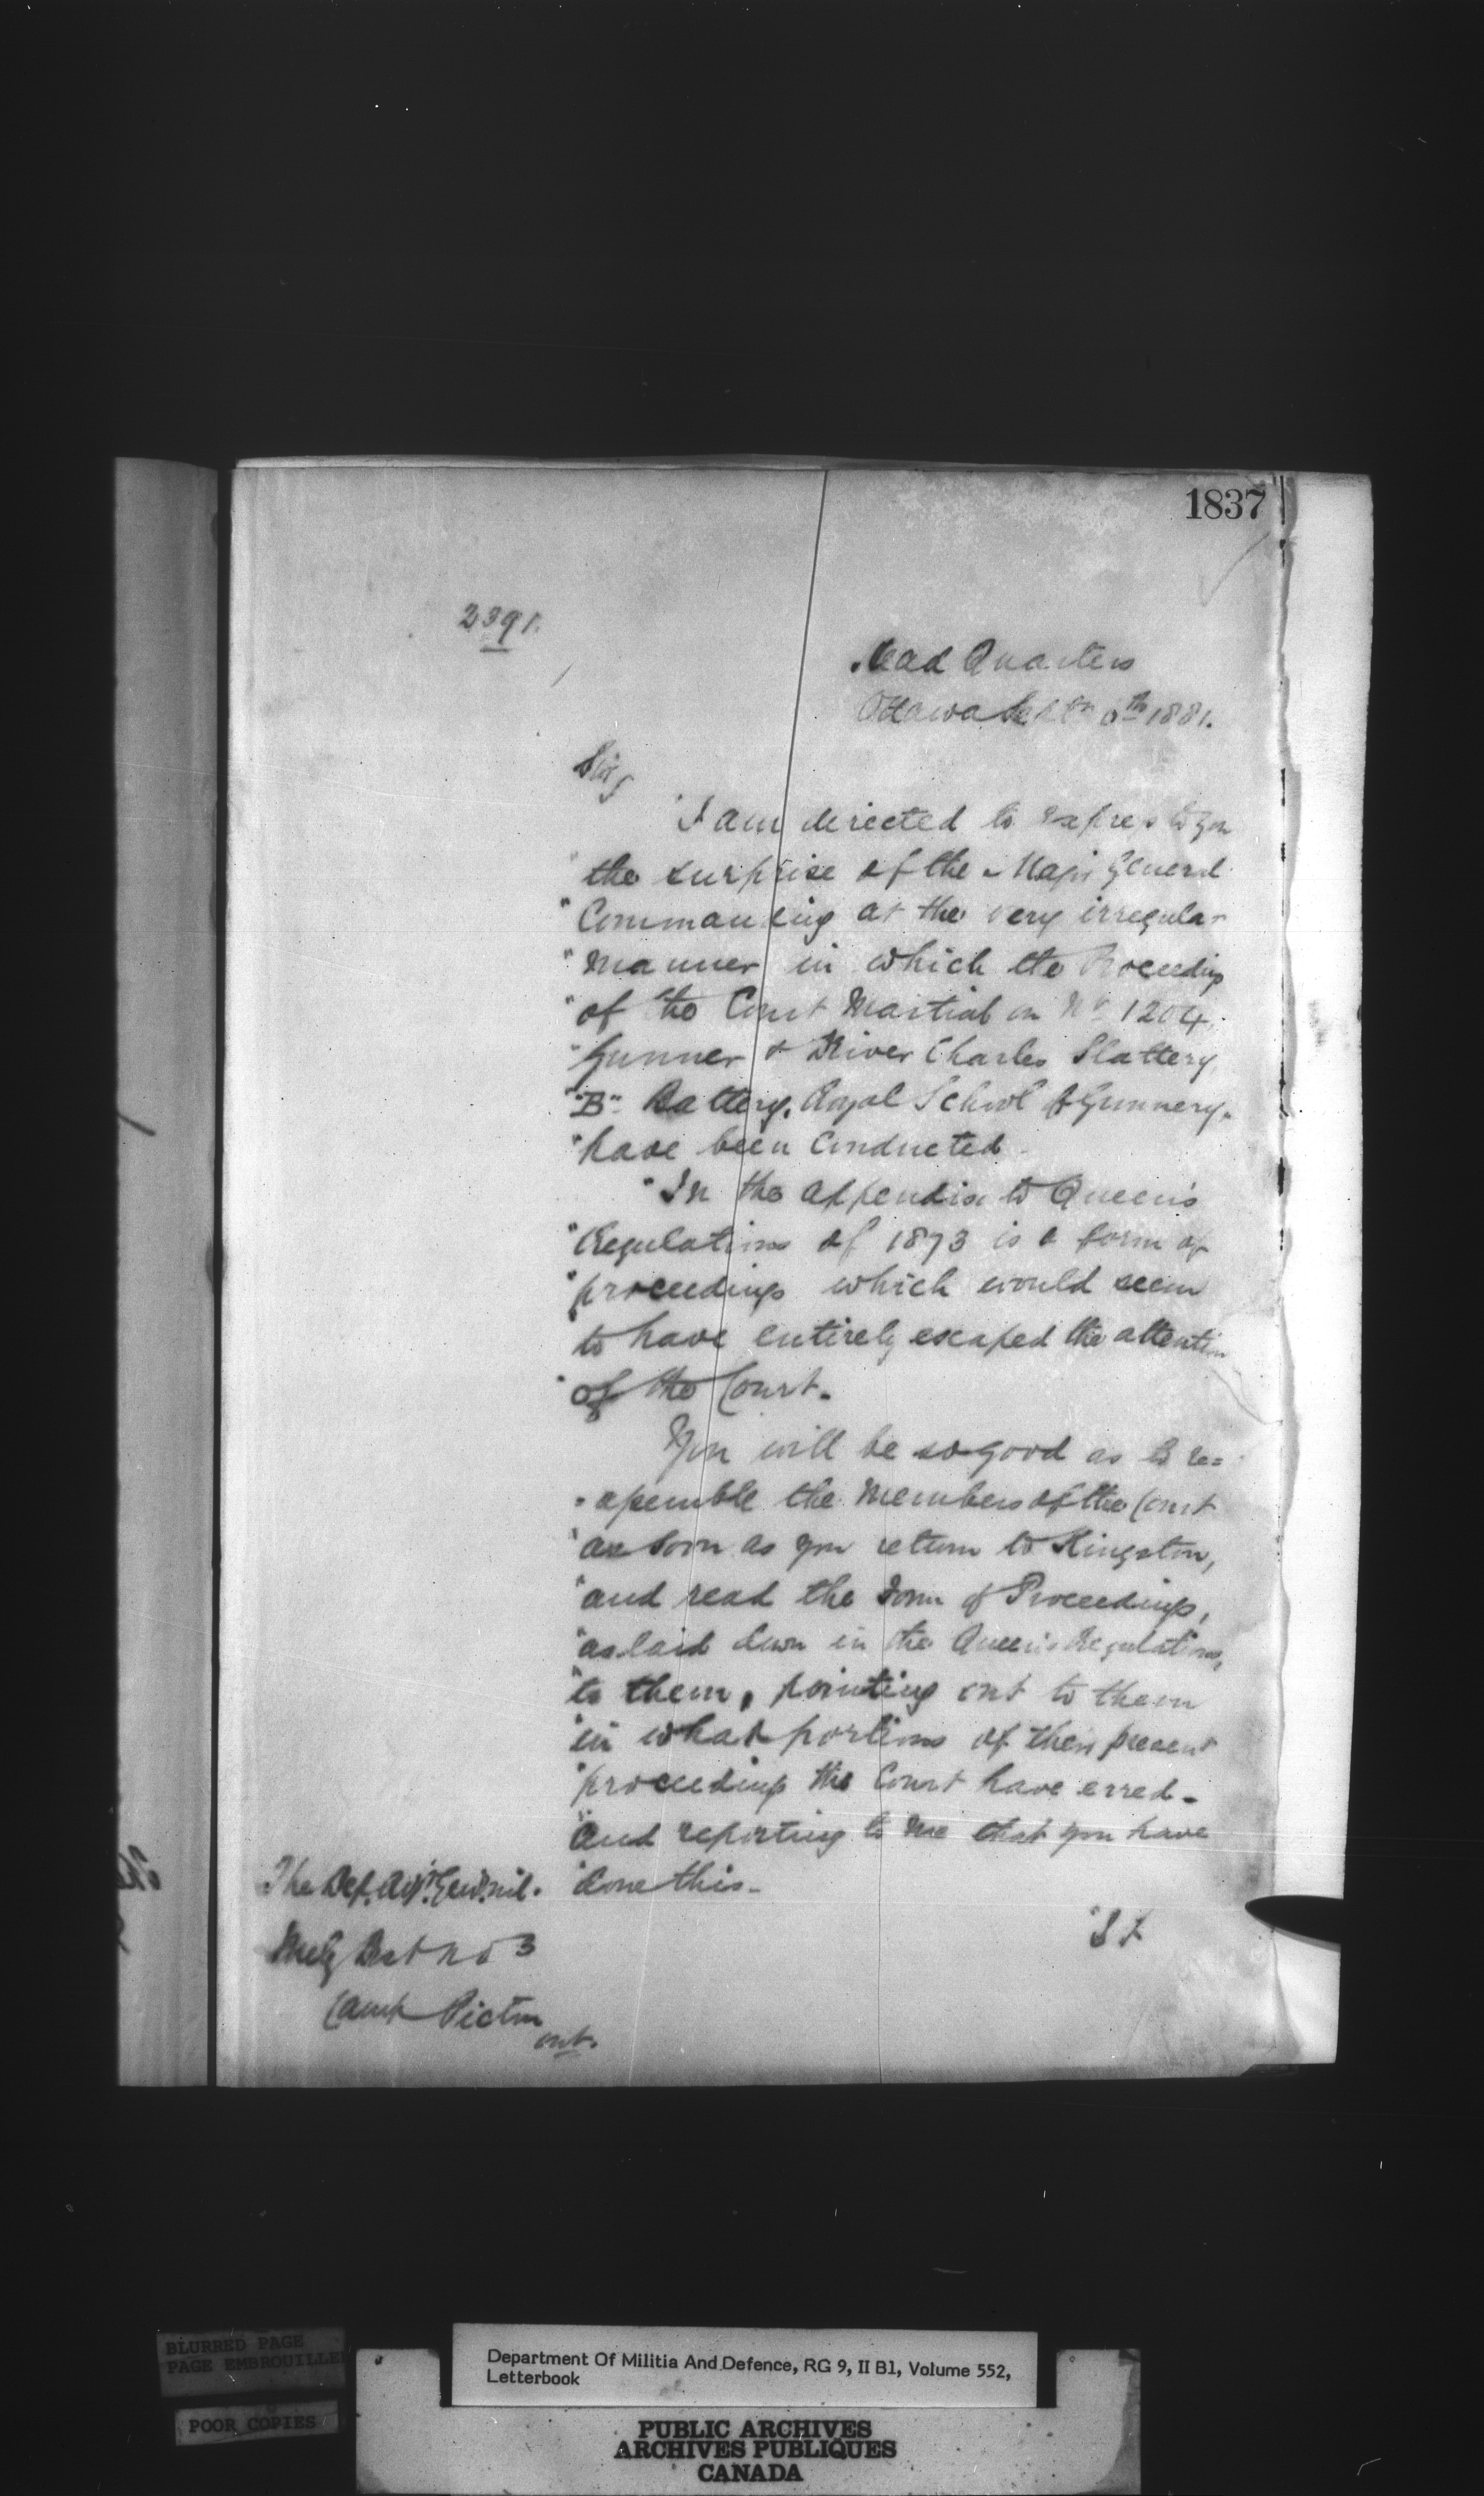 1837
2391.
Head Quarters
Ottawa 6th 1881.
Sir,
"I am directed to express to you
"the surprise of the Major General
"Commanding at the very irregular
"manner in which the Proceedings
"of the Court Martial on No 1204.
"Gunner & Driver Charles Slattery,
"B" Battery, Royal School of Gunnery.
"have been conducted.
"In the appendix to Queen's
"Regulations of 1873 is a form of
"proceedings which would seem
to have entirely escaped the attention
"of the Court.
You will be so good as to re=
"assemble the Members of the Court
"as soon as you return to Kingston,
"and read the Form of Proceedings,
"as laid down in the Queen's Regulations,
"to them, pointing out to them
"in what portions of their present
"proceedings the Court have erred-
"and reporting to me that you have
"done this-
The Dep. Adjt. Genl. Mil.
Mily Dist No 3
Camp Picton
ont.
BLURRED PAGE
PAGE EMBROUILLEE
POOR COPIES
Department Of Militia And Defence, RG 9, II B1, Volume 552,
Letterbook
PUBLIC ARCHIVES
ARCHIVES PUBLIQUES
CANADA